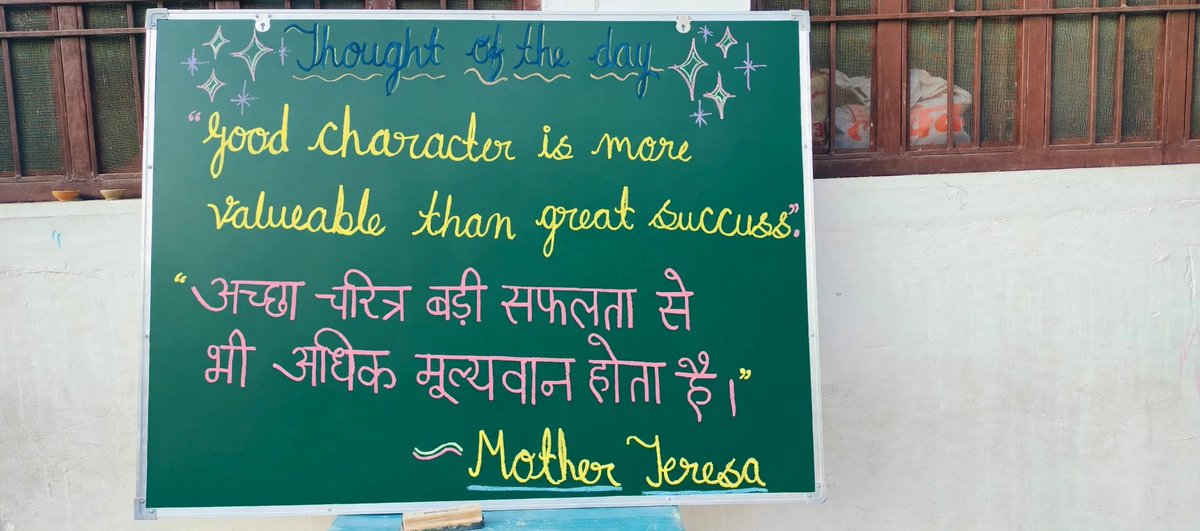 Thought of the day
"Good character is more
valueable than great succuss".
"अच्छा चरित्र बड़ी सफलता से
भी अधिक मूल्यवान होता है।"
~ Mother Teresa